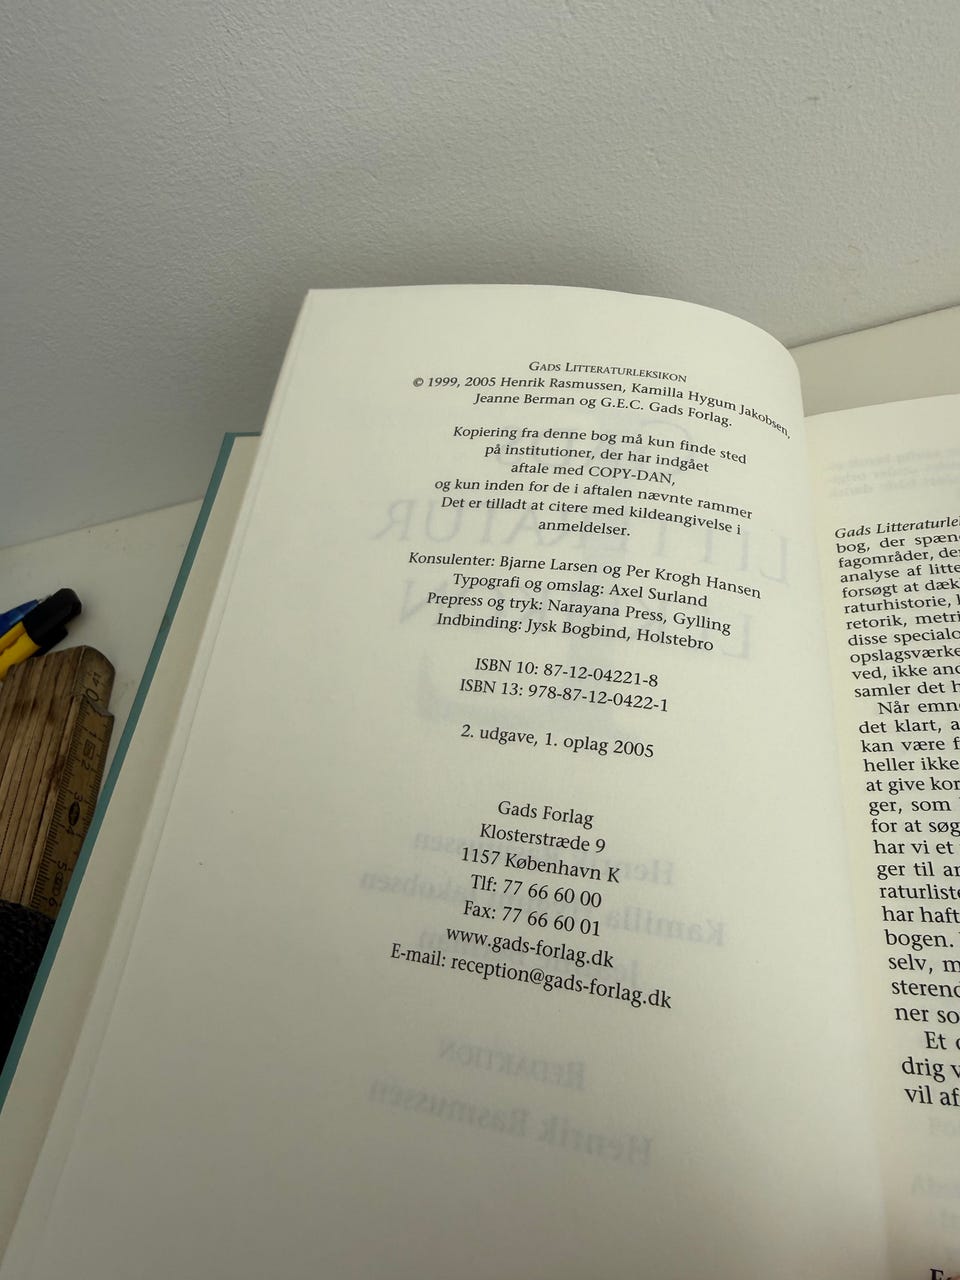 GADS LITTERATURLEKSIKON
© 1999, 2005 Henrik Rasmussen, Kamilla Hygum Jakobsen,
Jeanne Berman og G.E.C. Gads Forlag.
Kopiering fra denne bog må kun finde sted
på institutioner, der har indgået
aftale med COPY-DAN,
og kun inden for de i aftalen nævnte rammer
Det er tilladt at citere med kildeangivelse i
anmeldelser.
Konsulenter: Bjarne Larsen og Per Krogh Hansen
Typografi og omslag: Axel Surland
Prepress og tryk: Narayana Press, Gylling
Indbinding: Jysk Bogbind, Holstebro
ISBN 10: 87-12-04221-8
ISBN 13: 978-87-12-0422-1
2. udgave, 1. oplag 2005
Gads Forlag
Klosterstræde 9
1157 København K
Tlf: 77 66 60 00
Fax: 77 66 60 01
www.gads-forlag.dk
E-mail: reception@gads-forlag.dk
Gads Litteraturle
bog, der spæn
fagområder, de
analyse af litte
forsøgt at dæk
raturhistorie,
retorik, metri
disse specialo
opslagsværke
ved, ikke and
samler det h
Når emn
det klart, a
kan være f
heller ikke
at give kor
ger, som
for at søg
har vi et
ger til ar
raturliste
har haft
bogen.
selv, m
sterend
ner so
Et
drig v
vil af